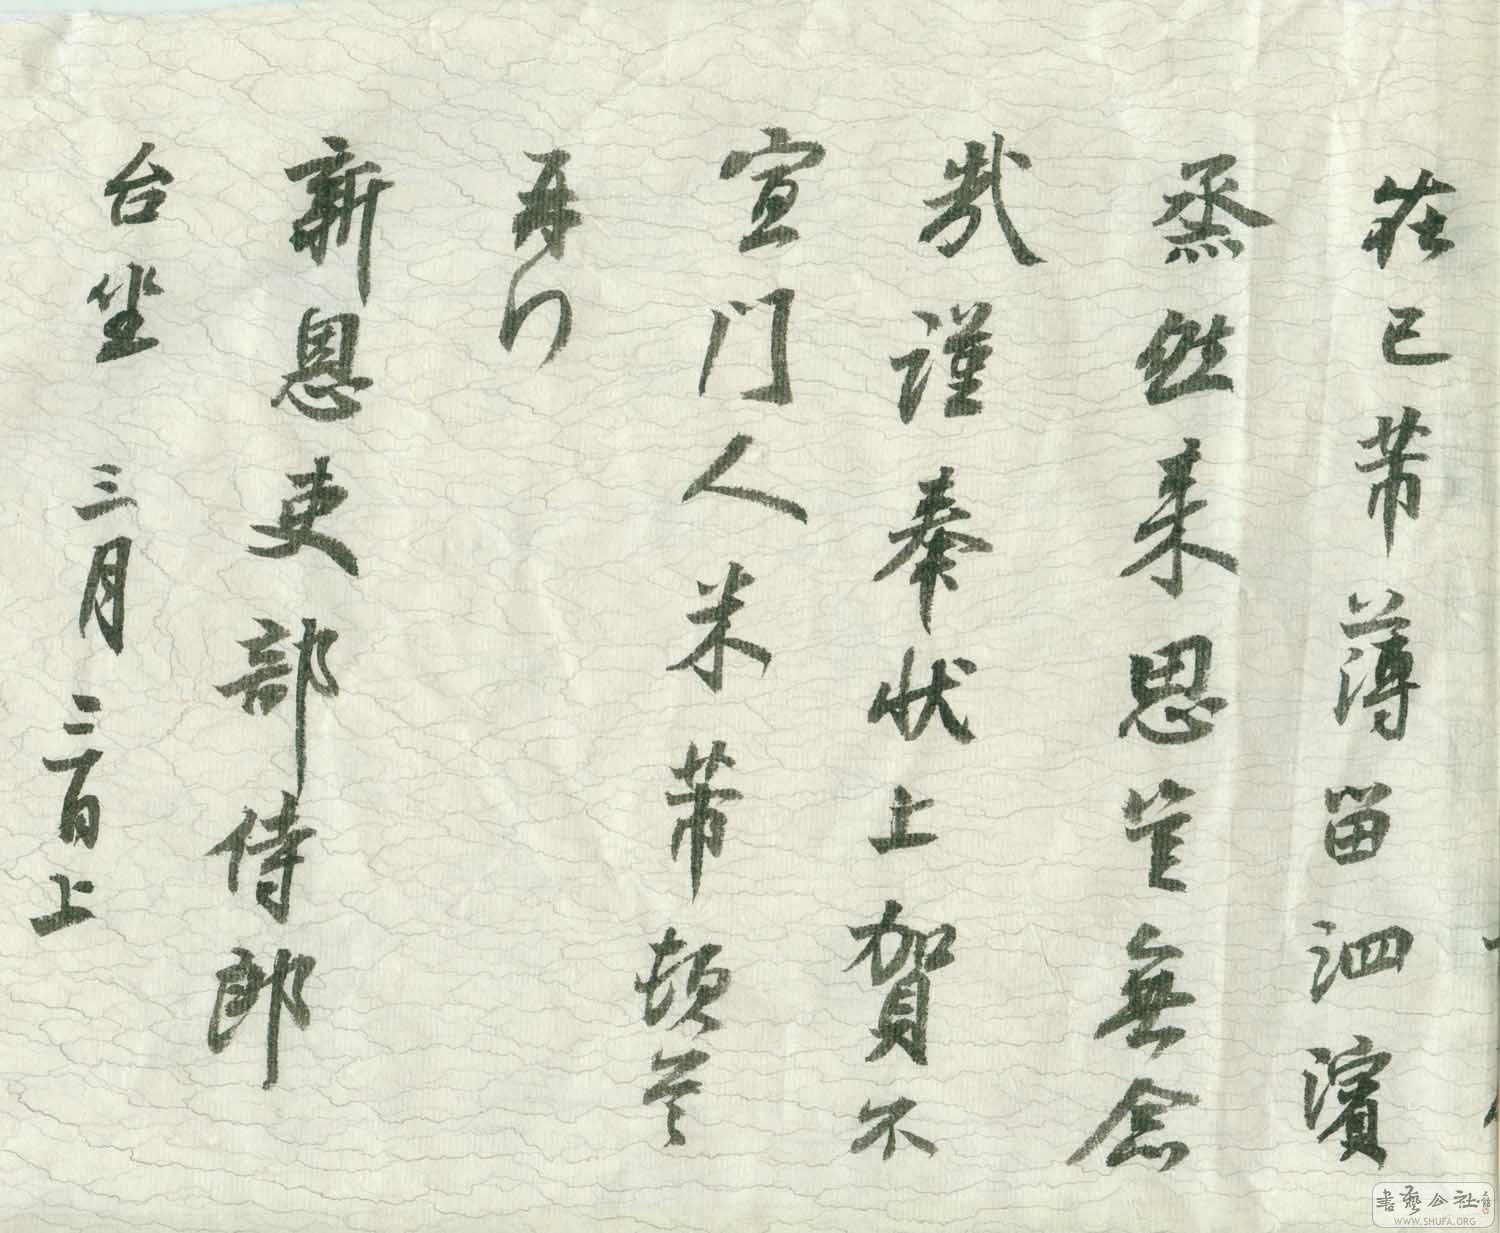 在已芾薄留泗濱
烝然来思豈無念
哉謹奉状上賀不
宣門人米芾頓首
再拜
新恩吏部侍郎
台坐 三月 日上
書藝公社
WWW.SHUFA.ORG